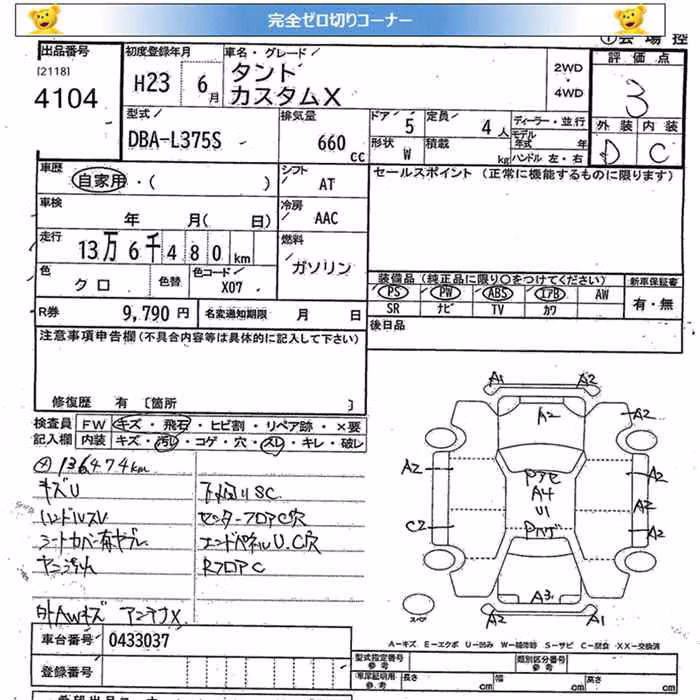 完全ゼロ切りコーナー
①会場控
出品番号 初度登録年月 車名・グレード 評価点
[2118]
4104
H23 6月
タント
カスタムX
2WD
・
4WD
3
型式 DBA-L375S
排気量 660 cc
ドア 5 定員 4人
形状 W 積載 kg
ディーラー・並行
モデル年式 年
ハンドル 左・右
外装 内装
D C
車歴 自家用・( )
シフト AT
セールスポイント(正常に機能するものに限ります)
車検 年 月( 日)
冷房 AAC
走行 13万6千480km
燃料 ガソリン
色 クロ 色替 色コード X07
装備品(純正品に限り○をつけてください) 新車保証書
PS PW ABS エアB AW
SR ナビ TV カワ
有・無
R券 9,790円 名変通知期限 月 日
後日品
注意事項申告欄(不具合内容等は具体的に記入して下さい)
修復歴 有 〔箇所 〕
検査員記入欄
FW キズ・飛石・ヒビ割・リペア跡・×要
内装 キズ・汚レ・コゲ・穴・スレ・キレ・破レ
136474km
キズU
ハンドルスレ
シートカバー有ヤブレ
ヤニ汚れ
下回りSC
センターフロアC穴
エンドパネルU.C穴
RフロアC
外AWキズ アンテナX
A1 A2
A2 A2
A2 A2
Pアセ
A4
U1
Pハゲ
A2
C2 A2
A3
A2 A1
スペア
A=キズ E=エクボ U=凹み W=補修跡 S=サビ C=腐食 XX=交換済
車台番号 0433037
登録番号
型式指定番号 参考 類別区分番号 参考
車庫証明用 参考 長さ cm 幅 cm 高さ cm
希望出品コーナー